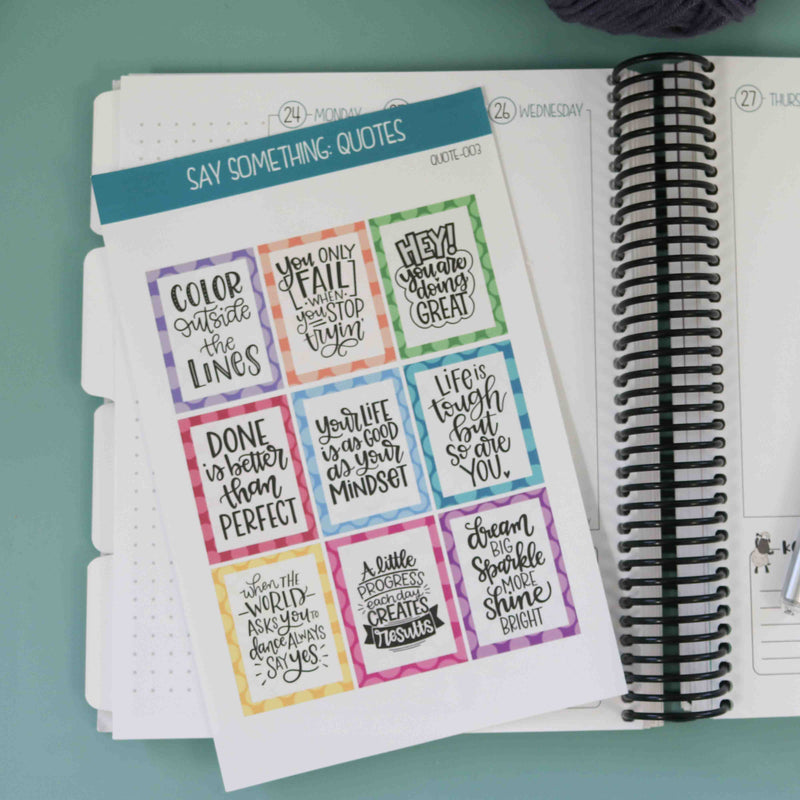 24 MONDAY
26 WEDNESDAY
27 THURS
SAY SOMETHING: QUOTES
QUOTE-003
COLOR
outside
the
LINES
you ONLY
FAIL
WHEN
you STOP
tryin'
HEY!
you are
doing
GREAT
DONE
is better
than
PERFECT
your LIFE
is as GOOD
as your
MINDSET
LIFE is
tough
but
so are
YOU.
when THE
WORLD
ASKS you TO
dance ALWAYS
SAY yes.
A little
PROGRESS
each day
CREATES
results
dream
BIG
Sparkle
MORE
Shine
BRIGHT